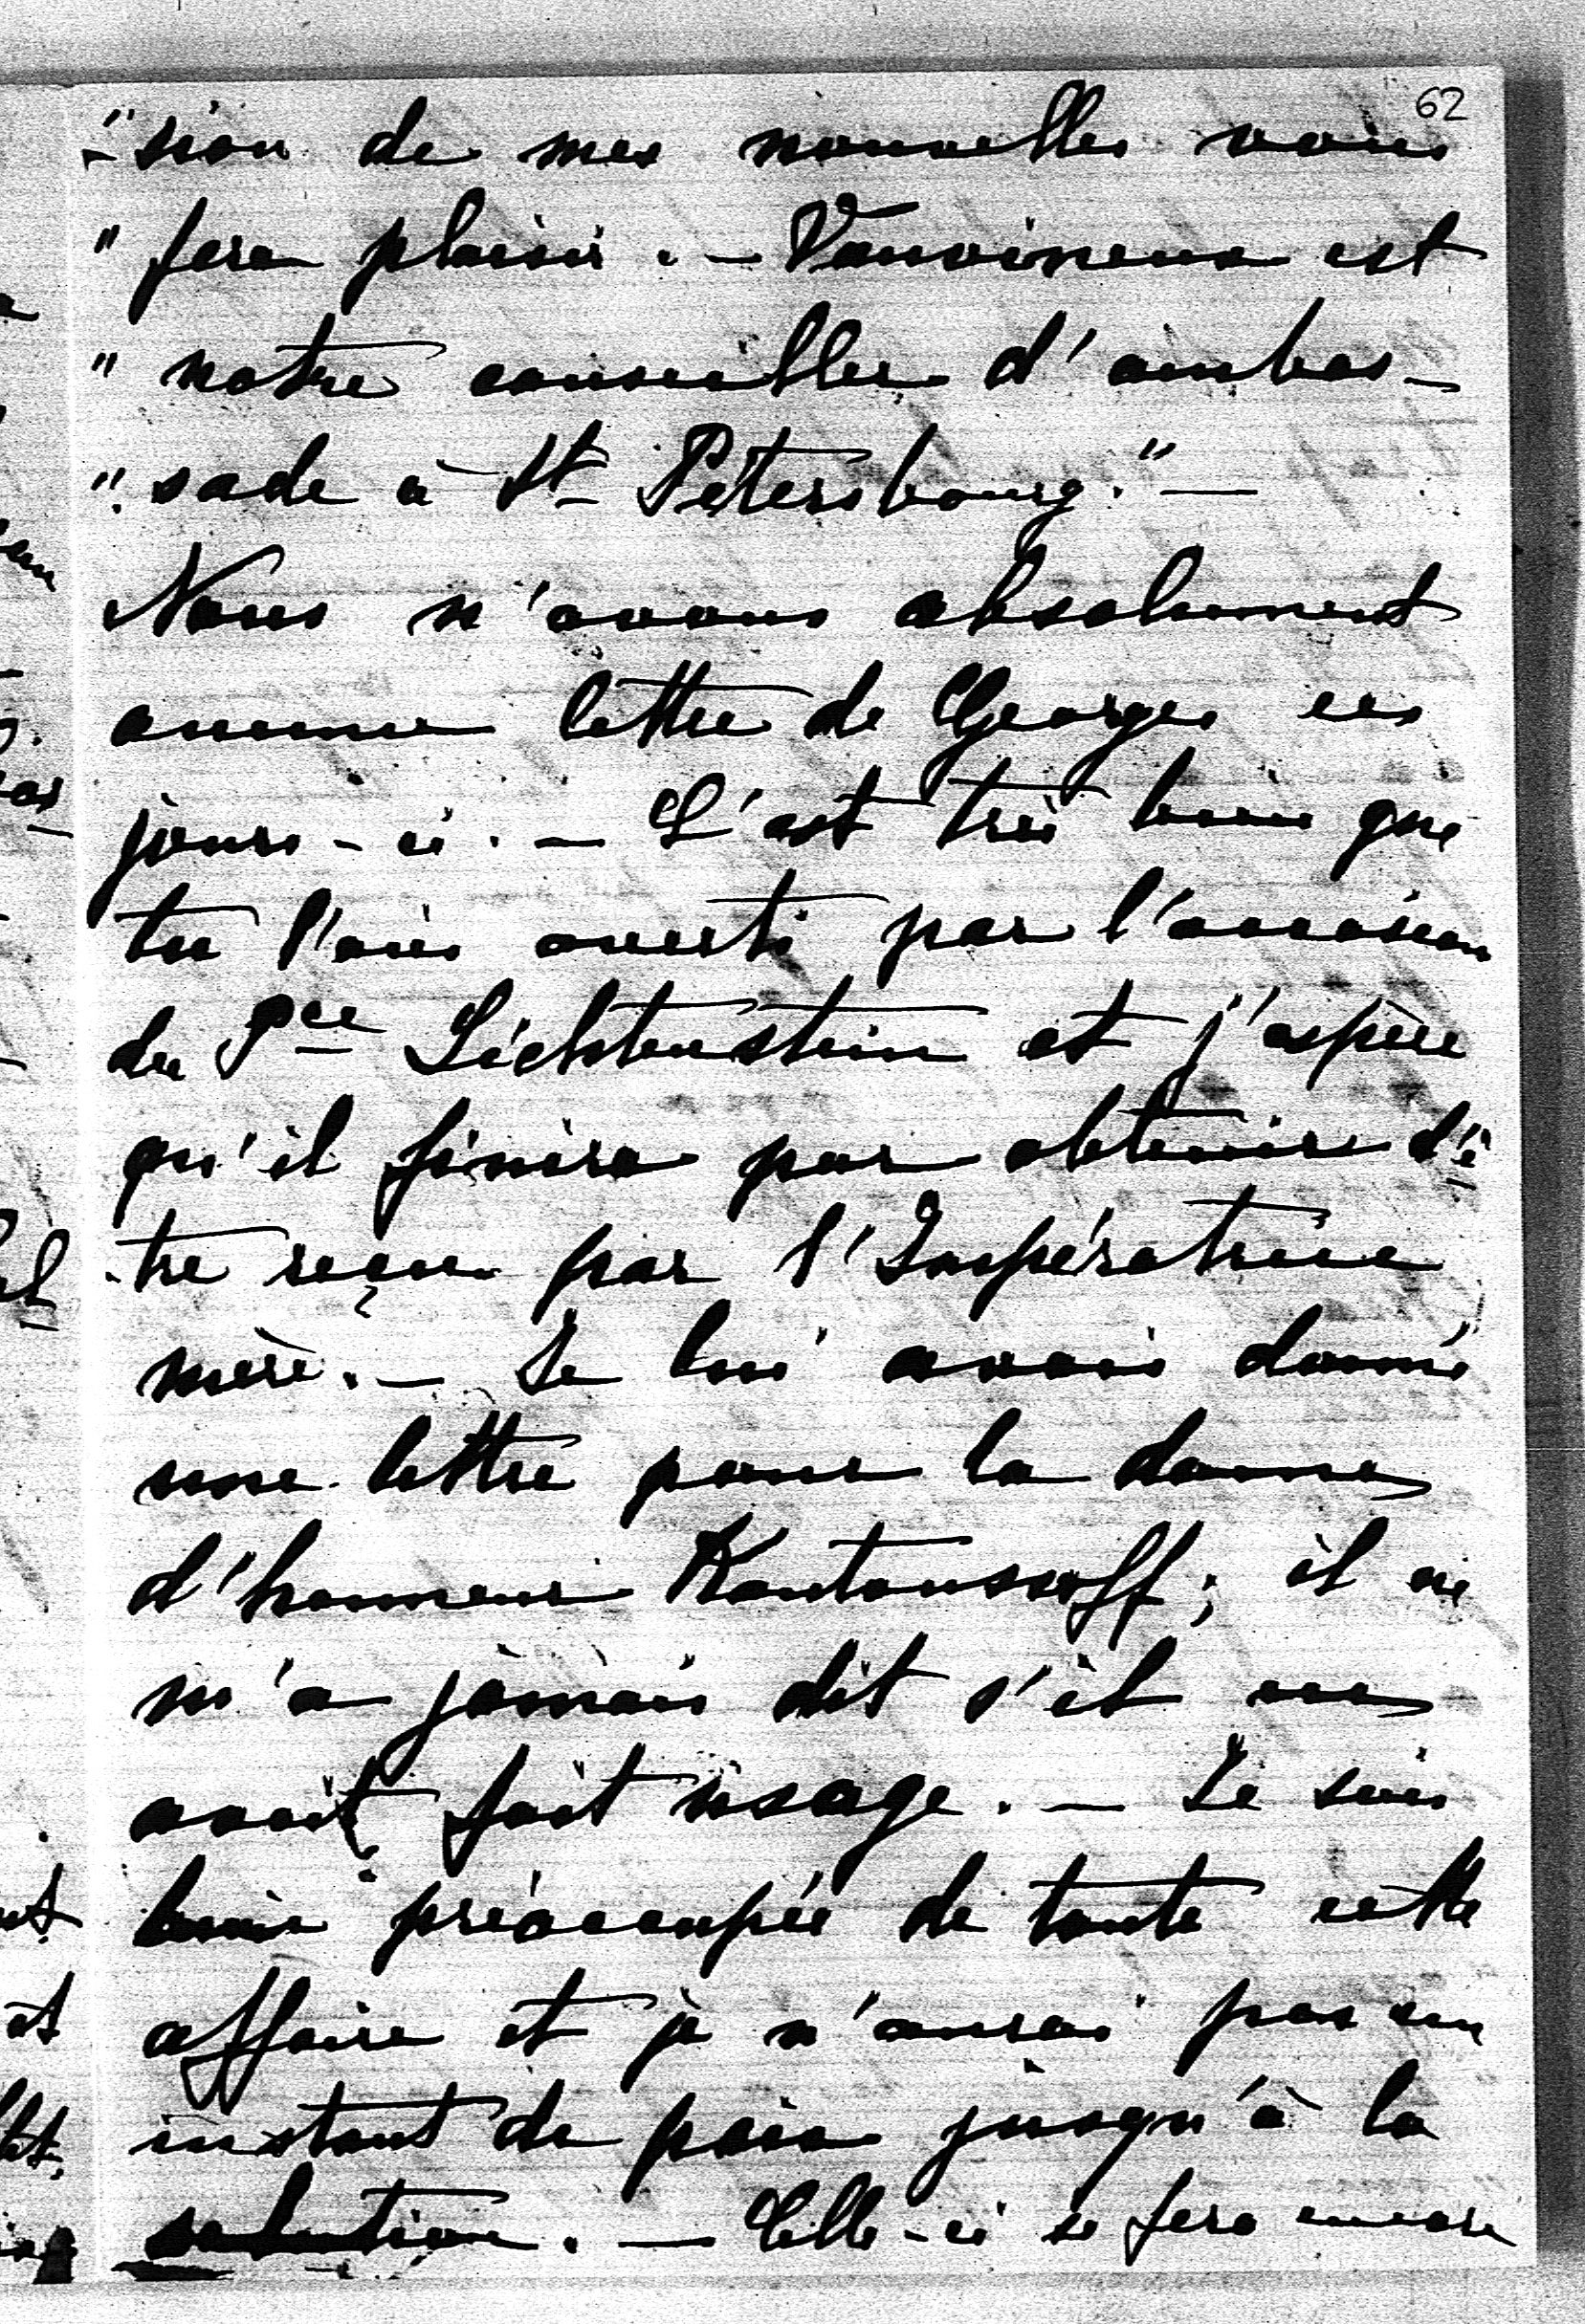 62
"sion de mes nouvelles vous
" fera plaisir. — Vauvineux est
" notre conseiller d'ambas-
" sade à St Pétersbourg." —
Nous n'avons absolument
aucune lettre de Georges ces
jours-ci. — C'est très bien que
tu l'aies averti par l'occasion
du Pce Lichtenstein et j'espère
qu'il finira par obtenir d'ê
-tre reçu par l'Impératrice
mère. — Je lui avais donné
une lettre pour la dame
d'honneur Koutoussoff; il ne
m'a jamais dit s'il en
avait fait usage. — Je suis
bien préoccupée de toute cette
affaire et je n'aurai pas un
instant de paix jusqu'à la
solution. — Celle-ci se fera encore